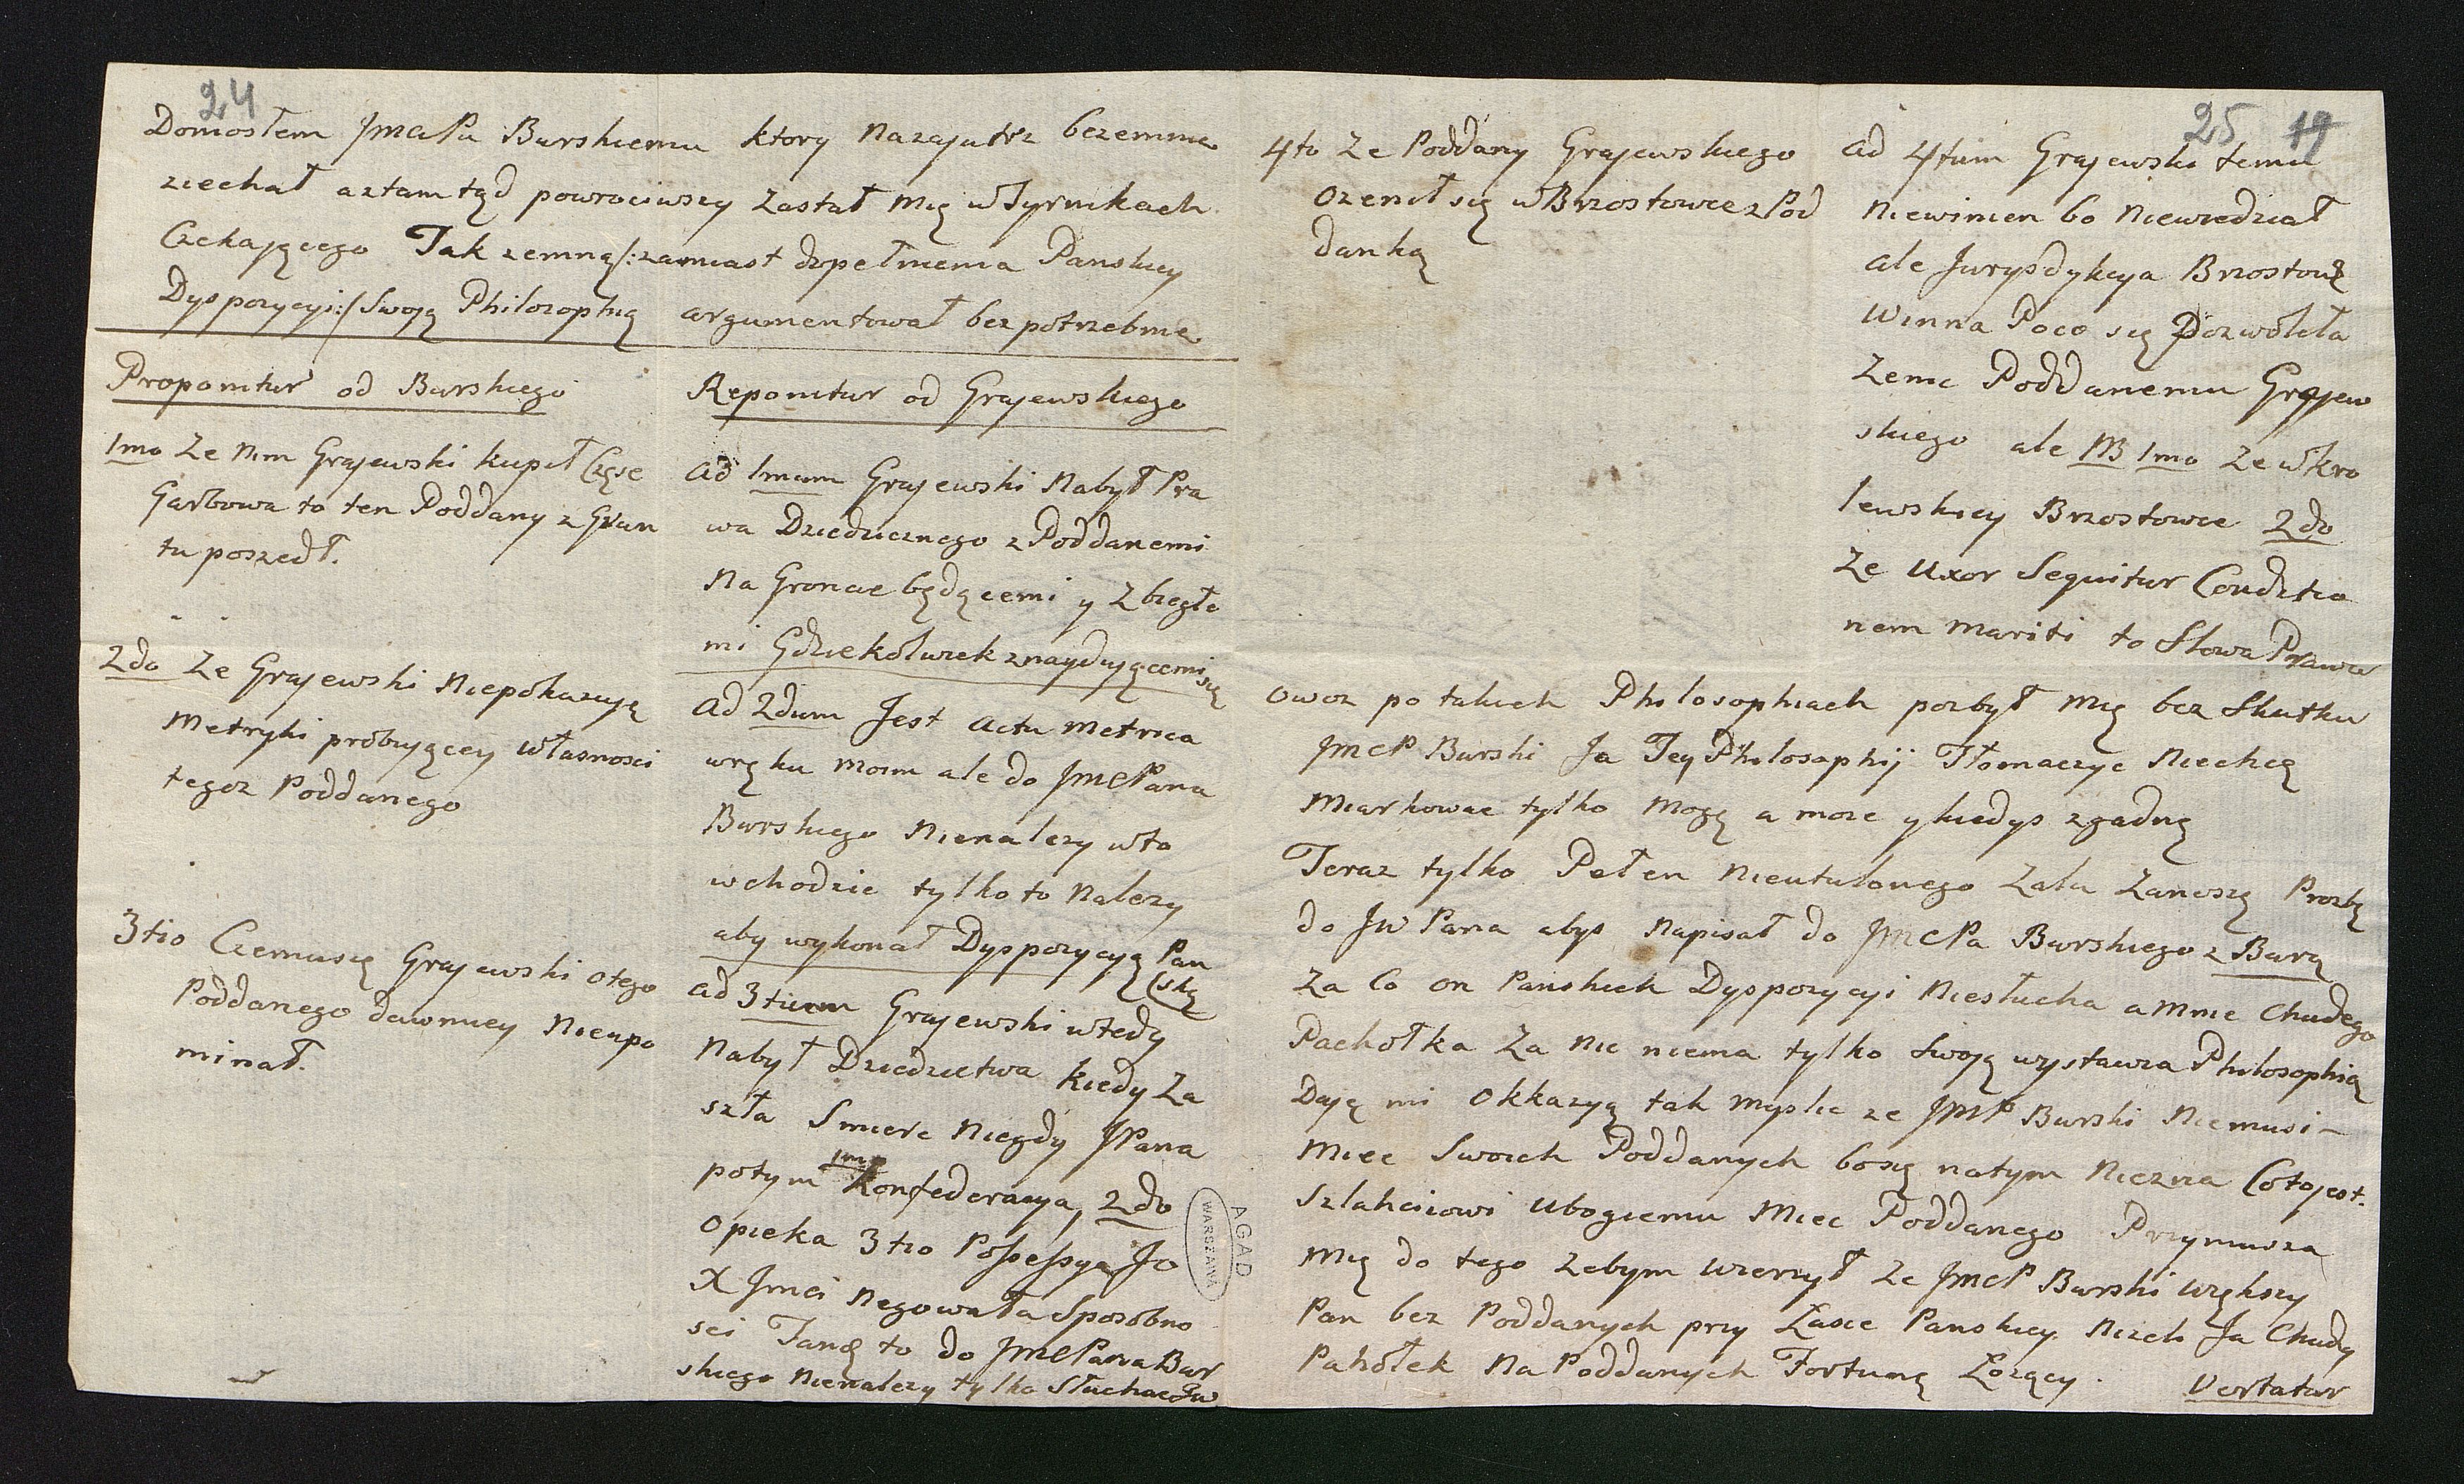 24
Doniosłem JmciPu Burskiemu ktory nazajutrz bezemnie
ziechał a ztamtąd powrociwszy zastał mię w Tyrmkach
Czekającego Tak zemną /: zamiast dopełnienia Panskiey
Dyspozycyi :/ Swoją Philozophią argumentował bez potrzebnie
Proponitur od Burskiego
1mo Ze nim Grajewski kupił Częsc
Garbowa to ten Poddany z Grun
tu poszedł.
2do Ze Grajewski Niepokazuię
Metryki probuyącey własnosci
tegoz Poddanego
3tio Czemusię Grajewski otego
Poddanego dawniey Nieupo
minał.
Reponitur od Grajewskiego
ad 1mum Grajewski Nabył Pra
wa Dziedzicznego z Poddanemi
na Groncie będącemi y Zbiegłe
mi Gdziekolwiek znayduiącemi
się
ad 2dum Jest actu Metrica
wręku moim ale do JmCPana
Burskiego Nienalezy wto
wchodzic tylko to Nalezy
aby wykonał Dyspozycyą Pan
(ską
ad 3tium Grajewski wtedy
Nabył Dziedzictwa kiedy Za
szła Smierc Niegdy JPana
potym 1mo Konfederacya, 2do
Opieka 3tio Possessya Jo
X Jmci Negowała Sposobno
sci Taną to do JmCPana Bur
skiego Nienalezy tylko Słuchac Jw
AGAD
WARSZAWA
25 19
4to Ze Poddany Grajewskiego
Ozenił się w Brzostowce z Pod
danką
ad 4tum Grajewski temu
Niewinien bo Niewiedział
ale Jurysdykcya Brzostows
Winna Poco się Pozwoliła
Zenic Poddanemu Grajew
skiego ale NB 1mo Ze w kro
lewskiey Brzostowce 2do
Ze Uxor Sequitur Conditio
nem mariti to Słowa Prawa
owoz po takich Philosophiach pozbył mię bez Skutku
JmCP Burski Ja Tey Philosophij Tłomaczyc Niechcę
Miarkowac tylko mogę a moze y kiedys zgadnę
Teraz tylko Pełen Nieutulonego Zalu Zanoszę Prozbę
do JW Pana abys Napisał do JmCPa Burskiego z Burą
Za Co on Panskich Dyspozycyi Niesłucha a mnie Chudego
Pachołka Za nic niema tylko Swoją wystawia Philosophią
Daję mi Okkazyą tak myslic ze JmP Burski Niemusi
Miec Swoich Poddanych bosię natym Niezna Cotojest
Szlahcicowi Ubogiemu Miec Poddanego Przymusza
mię do tego Zebym wierzył Ze JmCP Burski Większy
Pan bez Poddanych przy Łasce Panskiey Nizeli Ja Chudy
Pahołek Na Poddanych Fortunę Łozący.
Vertatur